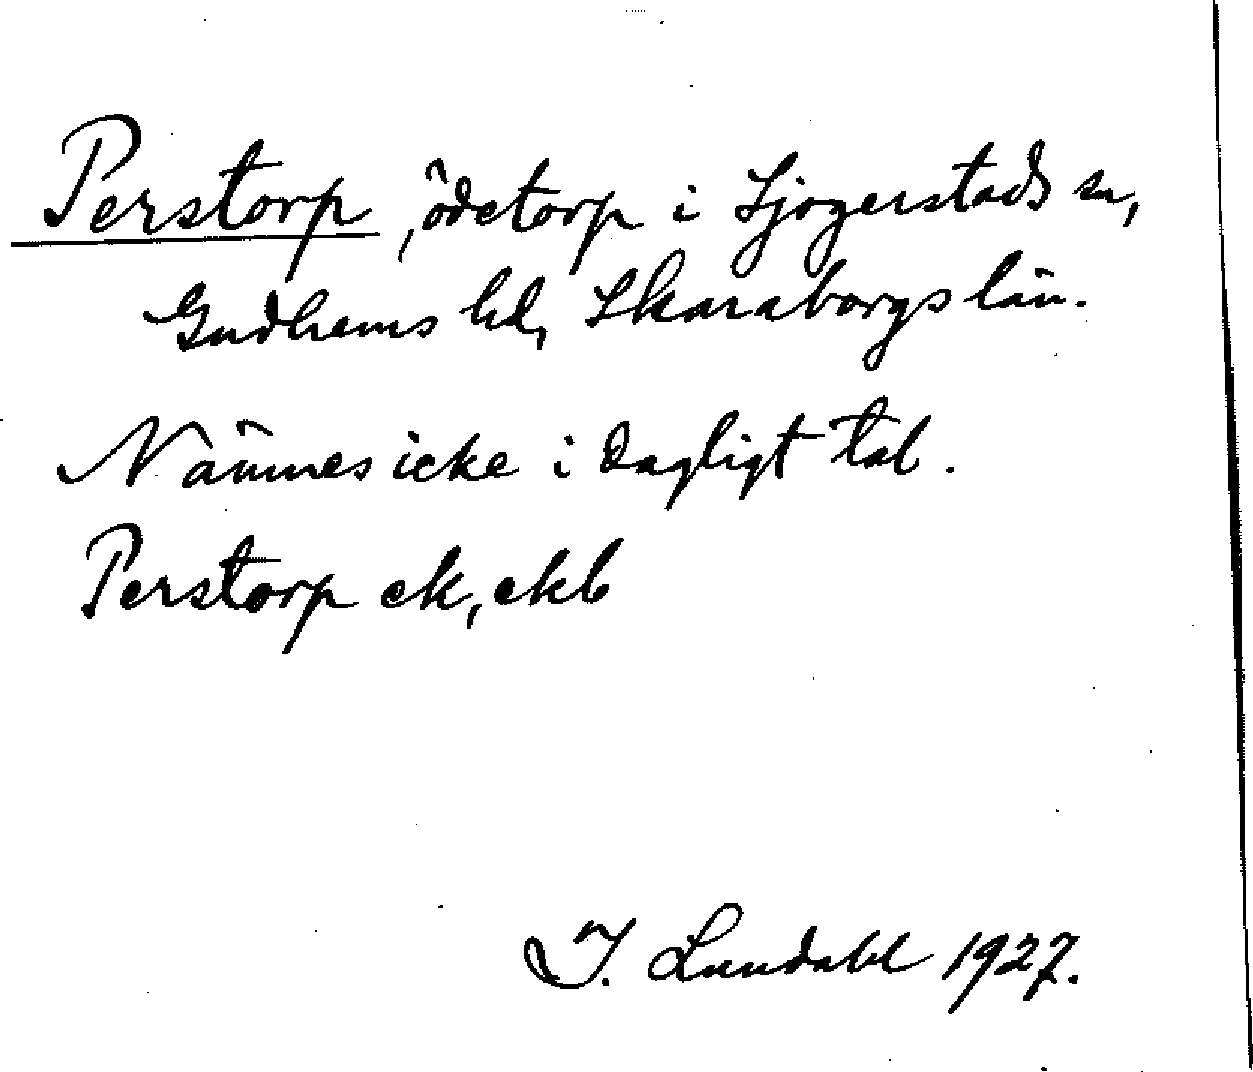 Perstorp, ödetorp i Sjogerstads sn,
Gudhems hd, Skaraborgs län.
Nämnes icke i dagligt tal.
Perstorp ek, ekb
I. Lundahl 1927.